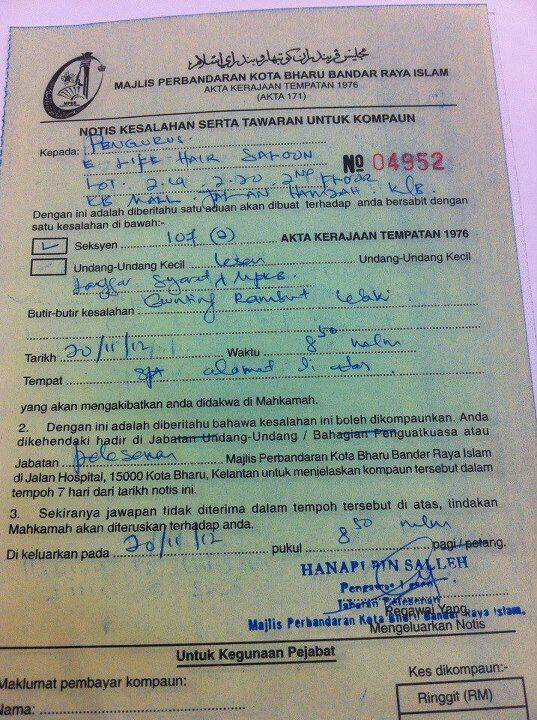 مجليس ڤربندرن کوت بهارو بندر راي اسلام
MPKB
MAJLIS PERBANDARAN KOTA BHARU BANDAR RAYA ISLAM
AKTA KERAJAAN TEMPATAN 1976
(AKTA 171)
NOTIS KESALAHAN SERTA TAWARAN UNTUK KOMPAUN
Kepada: PENGURUS.
E LIFE HAIR SALOON
No 04952
LOT. 2.19 2.20 2ND FLOOR
KB MALL. JALAN HAMZAH. K/B.
Dengan ini adalah diberitahu satu aduan akan dibuat terhadap anda bersabit dengan
satu kesalahan di bawah:-
Seksyen 107 (2) AKTA KERAJAAN TEMPATAN 1976
Undang-Undang Kecil Lesen Undang-Undang Kecil
Langgar Syarat MPKB
Butir-butir kesalahan Gunting Rambut Lelaki.
Tarikh 20/11/12 Waktu 8 50 malam
Tempat alamat di atas.
yang akan mengakibatkan anda didakwa di Mahkamah.
2. Dengan ini adalah diberitahu bahawa kesalahan ini boleh dikompaunkan. Anda
dikehendaki hadir di Jabatan Undang-Undang / Bahagian Penguatkuasa atau
Jabatan pelesenan Majlis Perbandaran Kota Bharu Bandar Raya Islam
di Jalan Hospital, 15000 Kota Bharu, Kelantan untuk menjelaskan kompaun tersebut dalam
tempoh 7 hari dari tarikh notis ini.
3. Sekiranya jawapan tidak diterima dalam tempoh tersebut di atas, tindakan
Mahkamah akan diteruskan terhadap anda.
Di keluarkan pada 20/11/12 pukul 8 50 malam pagi / petang.
HANAPI BIN SALLEH
Pengawas Lesen
Jabatan Pelesenan
Pegawai Yang
Majlis Perbandaran Kota Bharu Bandar Raya Islam.
Mengeluarkan Notis
Untuk Kegunaan Pejabat
Maklumat pembayar kompaun:
Kes dikompaun:-
Nama:
Ringgit (RM)